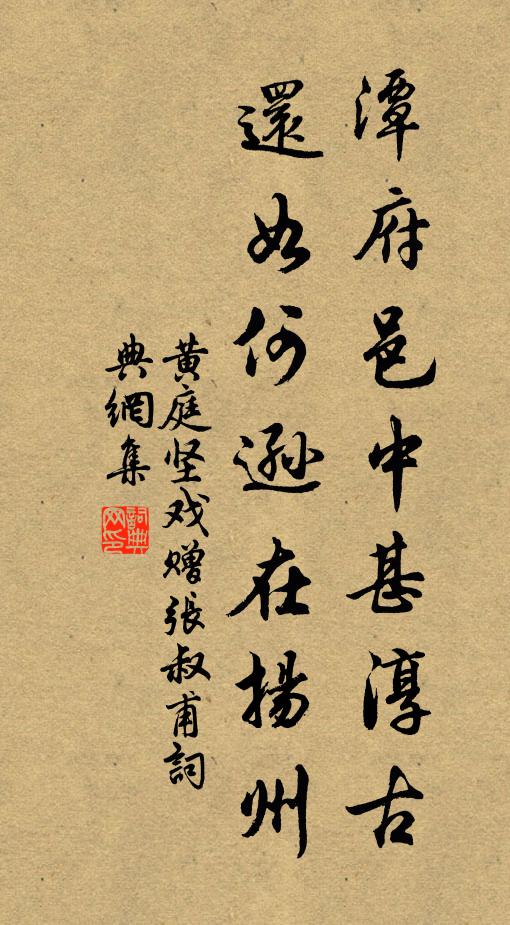 潭府邑中甚淳古
還如何遜在揚州
黄庭坚戏赠張叔甫詞
典網集
詞典网印